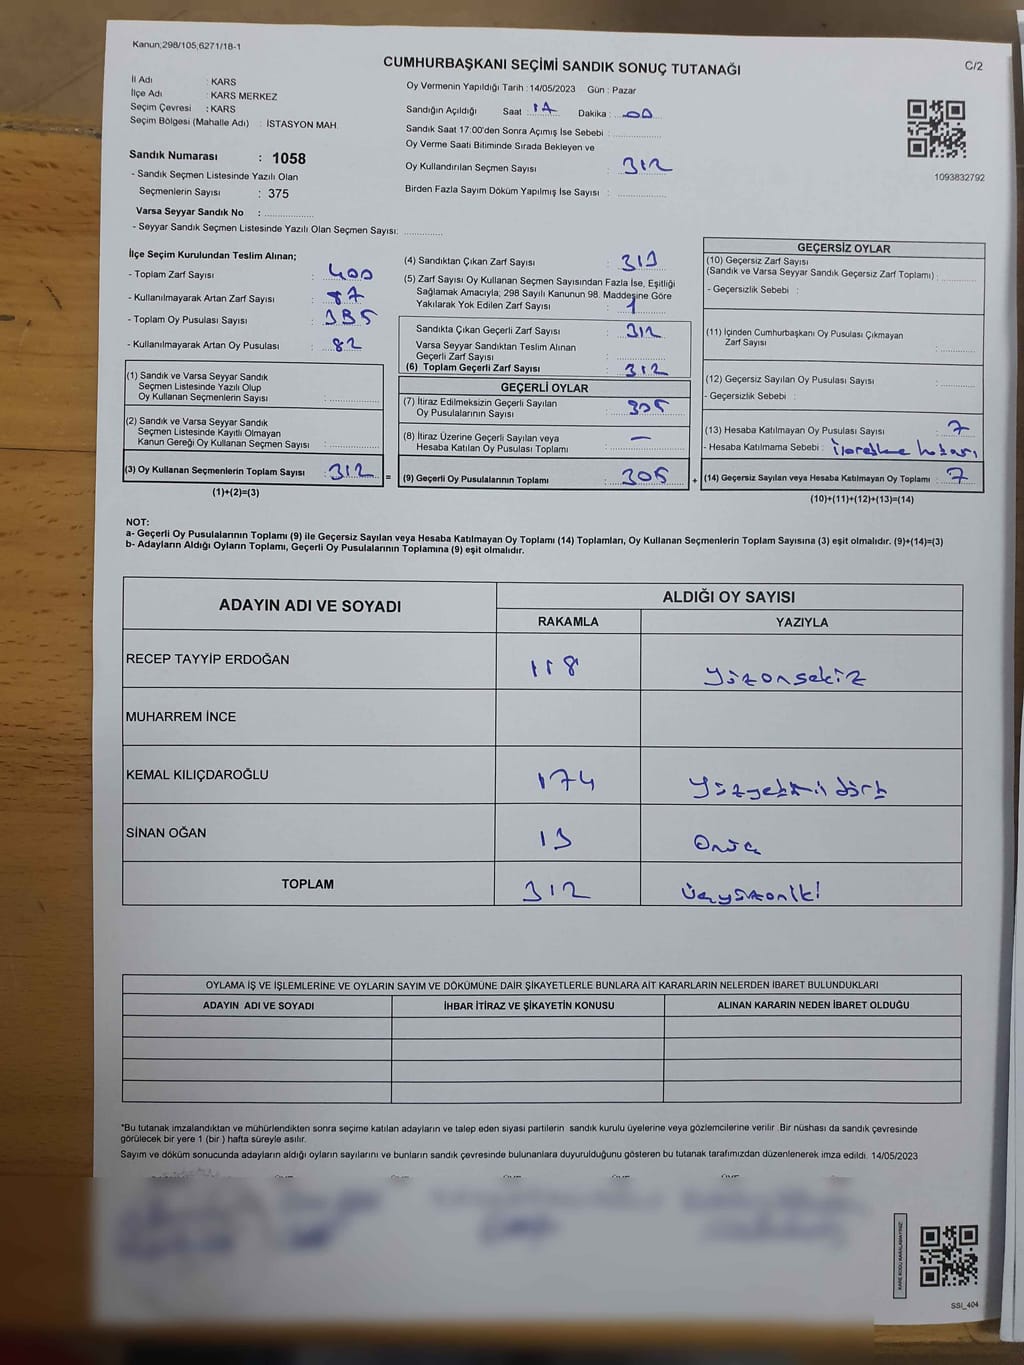 Kanun;298/105,6271/18-1
CUMHURBAŞKANI SEÇİMİ SANDIK SONUÇ TUTANAĞI
C/2
İl Adı : KARS
İlçe Adı : KARS MERKEZ
Seçim Çevresi : KARS
Seçim Bölgesi (Mahalle Adı) : İSTASYON MAH.
Sandık Numarası : 1058
- Sandık Seçmen Listesinde Yazılı Olan
Seçmenlerin Sayısı : 375
Varsa Seyyar Sandık No :
- Seyyar Sandık Seçmen Listesinde Yazılı Olan Seçmen Sayısı:
Oy Vermenin Yapıldığı Tarih : 14/05/2023 Gün : Pazar
Sandığın Açıldığı Saat : Dakika : 00
Sandık Saat 17:00'den Sonra Açımış İse Sebebi :
Oy Verme Saati Bitiminde Sırada Bekleyen ve
Oy Kullandırılan Seçmen Sayısı : 312
Birden Fazla Sayım Döküm Yapılmış İse Sayısı :
1093832792
İlçe Seçim Kurulundan Teslim Alınan;
- Toplam Zarf Sayısı : 400
- Kullanılmayarak Artan Zarf Sayısı : 87
- Toplam Oy Pusulası Sayısı : 395
- Kullanılmayarak Artan Oy Pusulası : 82
(1) Sandık ve Varsa Seyyar Sandık
Seçmen Listesinde Yazılı Olup
Oy Kullanan Seçmenlerin Sayısı :
(2) Sandık ve Varsa Seyyar Sandık
Seçmen Listesinde Kayıtlı Olmayan
Kanun Gereği Oy Kullanan Seçmen Sayısı :
(3) Oy Kullanan Seçmenlerin Toplam Sayısı : 312
(1)+(2)=(3)
=
(4) Sandıktan Çıkan Zarf Sayısı : 313
(5) Zarf Sayısı Oy Kullanan Seçmen Sayısından Fazla İse, Eşitliği
Sağlamak Amacıyla; 298 Sayılı Kanunun 98. Maddesine Göre
Yakılarak Yok Edilen Zarf Sayısı : 1
Sandıkta Çıkan Geçerli Zarf Sayısı : 312
Varsa Seyyar Sandıktan Teslim Alınan
Geçerli Zarf Sayısı :
(6) Toplam Geçerli Zarf Sayısı : 312
GEÇERLİ OYLAR
(7) İtiraz Edilmeksizin Geçerli Sayılan
Oy Pusulalarının Sayısı : 305
(8) İtiraz Üzerine Geçerli Sayılan veya
Hesaba Katılan Oy Pusulası Toplamı : —
(9) Geçerli Oy Pusulalarının Toplamı : 305
+
GEÇERSİZ OYLAR
(10) Geçersiz Zarf Sayısı
(Sandık ve Varsa Seyyar Sandık Geçersiz Zarf Toplamı) :
- Geçersizlik Sebebi :
(11) İçinden Cumhurbaşkanı Oy Pusulası Çıkmayan
Zarf Sayısı :
(12) Geçersiz Sayılan Oy Pusulası Sayısı :
- Geçersizlik Sebebi :
(13) Hesaba Katılmayan Oy Pusulası Sayısı : 7
- Hesaba Katılmama Sebebi : hatası
(14) Geçersiz Sayılan veya Hesaba Katılmayan Oy Toplamı : 7
(10)+(11)+(12)+(13)=(14)
NOT:
a- Geçerli Oy Pusulalarının Toplamı (9) ile Geçersiz Sayılan veya Hesaba Katılmayan Oy Toplamı (14) Toplamları, Oy Kullanan Seçmenlerin Toplam Sayısına (3) eşit olmalıdır. (9)+(14)=(3)
b- Adayların Aldığı Oyların Toplamı, Geçerli Oy Pusulalarının Toplamına (9) eşit olmalıdır.
ADAYIN ADI VE SOYADI
ALDIĞI OY SAYISI
RAKAMLA YAZIYLA
RECEP TAYYİP ERDOĞAN 118 Yüzonsekiz
MUHARREM İNCE
KEMAL KILIÇDAROĞLU 174 Yüzyetmişdört
SİNAN OĞAN 13 Onüç
TOPLAM 312 Üçyüzoniki
OYLAMA İŞ VE İŞLEMLERİNE VE OYLARIN SAYIM VE DÖKÜMÜNE DAİR ŞİKAYETLERLE BUNLARA AİT KARARLARIN NELERDEN İBARET BULUNDUKLARI
ADAYIN ADI VE SOYADI İHBAR İTİRAZ VE ŞİKAYETİN KONUSU ALINAN KARARIN NEDEN İBARET OLDUĞU
*Bu tutanak imzalandıktan ve mühürlendikten sonra seçime katılan adayların ve talep eden siyasi partilerin sandık kurulu üyelerine veya gözlemcilerine verilir .Bir nüshası da sandık çevresinde
görülecek bir yere 1 (bir ) hafta süreyle asılır.
Sayım ve döküm sonucunda adayların aldığı oyların sayılarını ve bunların sandık çevresinde bulunanlara duyurulduğunu gösteren bu tutanak tarafımızdan düzenlenerek imza edildi. 14/05/2023
KARE KODU KARALAMAYINIZ!
SSI_404